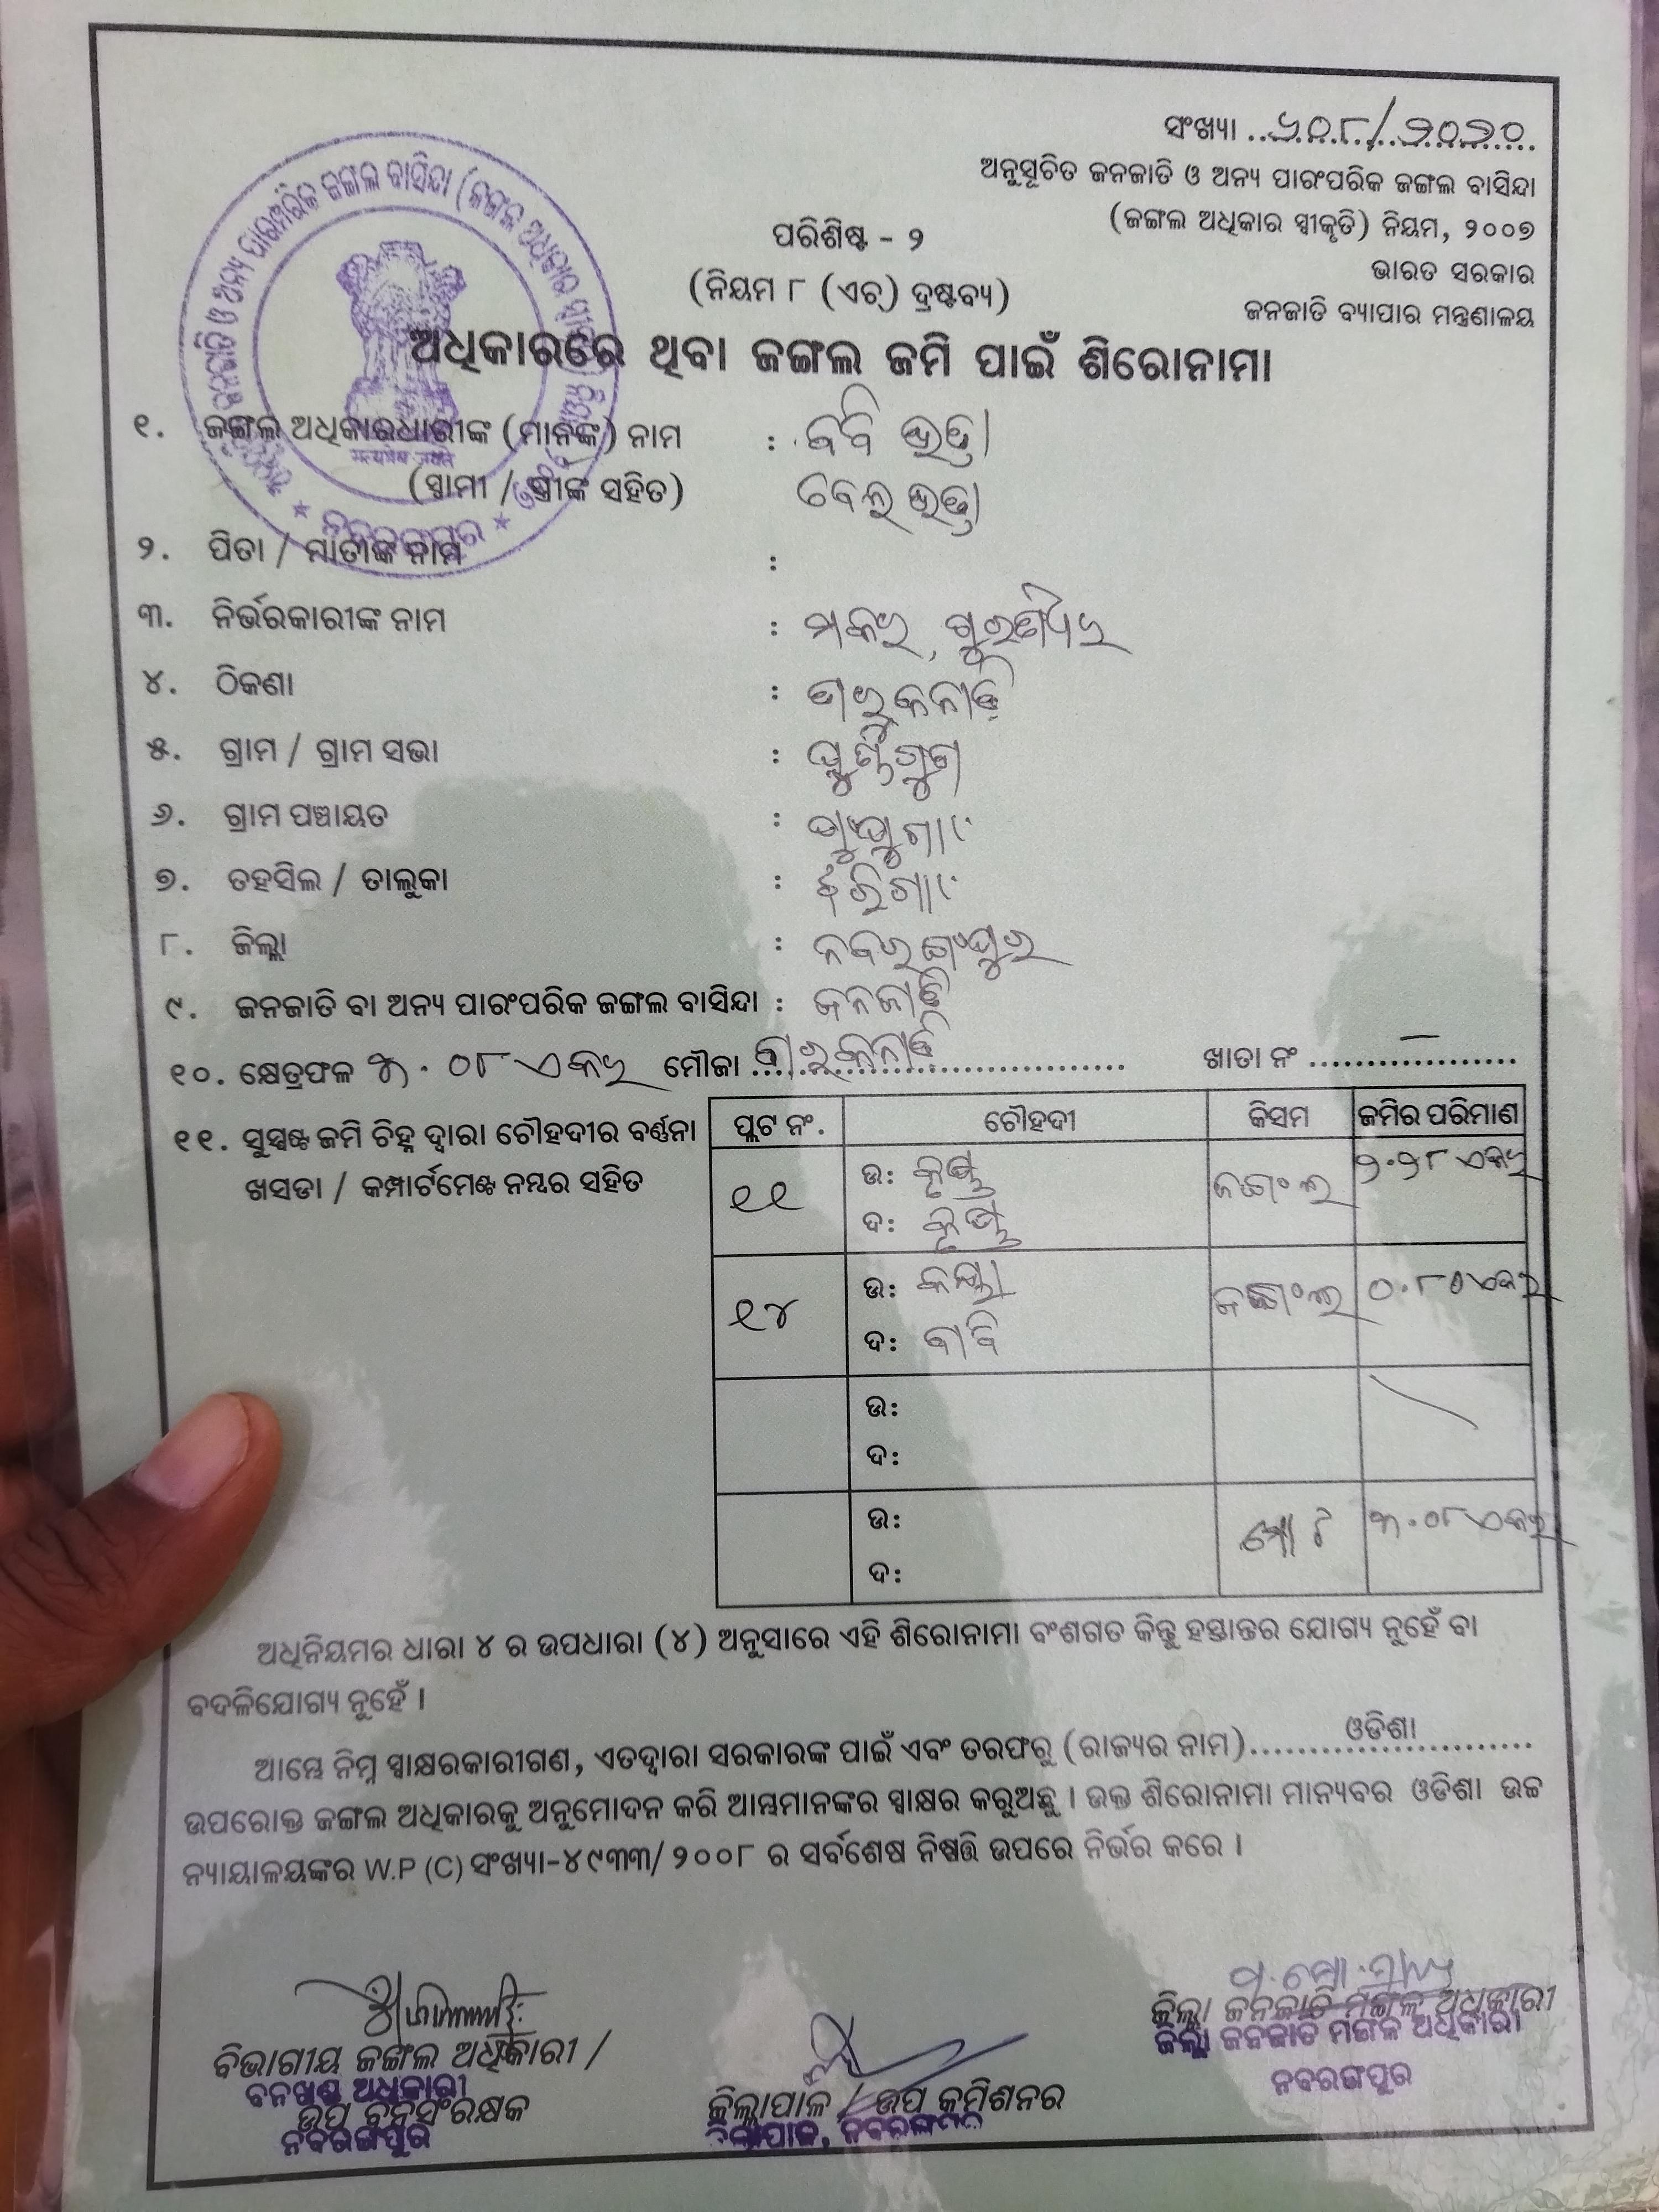 ସଂଖ୍ୟା ..୬୦୮/୨୦୨୦..
ଅନୁସୂଚିତ ଜନଜାତି ଓ ଅନ୍ୟ ପାରଂପରିକ ଜଙ୍ଗଲ ବାସିନ୍ଦା
(ଜଙ୍ଗଲ ଅଧିକାର ସ୍ୱୀକୃତି) ନିୟମ, ୨୦୦୭
ଭାରତ ସରକାର
ଜନଜାତି ବ୍ୟାପାର ମନ୍ତ୍ରଣାଳୟ
ପରିଶିଷ୍ଟ - ୨
(ନିୟମ ୮ (ଏଚ୍) ଦ୍ରଷ୍ଟବ୍ୟ)
ଅଧିକାରରେ ଥିବା ଜଙ୍ଗଲ ଜମି ପାଇଁ ଶିରୋନାମା
୧. ଜଙ୍ଗଲ ଅଧିକାରଧାରୀଙ୍କ (ମାନଙ୍କ) ନାମ :
(ସ୍ୱାମୀ / ସ୍ତ୍ରୀଙ୍କ ସହିତ)
୨. ପିତା / ମାତାଙ୍କ ନାମ :
୩. ନିର୍ଭରକାରୀଙ୍କ ନାମ : ମକର,
୪. ଠିକଣା :
୫. ଗ୍ରାମ / ଗ୍ରାମ ସଭା :
୬. ଗ୍ରାମ ପଞ୍ଚାୟତ :
୭. ତହସିଲ / ତାଲୁକା : ଝରିଗାଁ
୮. ଜିଲ୍ଲା : ନବରଂଗପୁର
୯. ଜନଜାତି ବା ଅନ୍ୟ ପାରଂପରିକ ଜଙ୍ଗଲ ବାସିନ୍ଦା : ଜନଜାତି
୧୦. କ୍ଷେତ୍ରଫଳ ୩.୦୮ ଏକର ମୌଜା ............ ଖାତା ନଂ ............
୧୧. ସୁସ୍ପଷ୍ଟ ଜମି ଚିହ୍ନ ଦ୍ୱାରା ଚୌହଦୀର ବର୍ଣ୍ଣନା
ଖସଡା / କମ୍ପାର୍ଟମେଣ୍ଟ ନମ୍ବର ସହିତ
ପ୍ଲଟ ନଂ. ଚୌହଦୀ କିସମ ଜମିର ପରିମାଣ
୧୧ ଉ: ଜଗଂଲ ୨.୨୮ ଏକର
ଦ:
୧୪ ଉ: ଜଗଂଲ ୦.୮୦ ଏକର
ଦ:
ଉ:
ଦ:
ଉ: ମୋଃ ୩.୦୮ ଏକର
ଦ:
ଅଧିନିୟମର ଧାରା ୪ ର ଉପଧାରା (୪) ଅନୁସାରେ ଏହି ଶିରୋନାମା ବଂଶଗତ କିନ୍ତୁ ହସ୍ତାନ୍ତର ଯୋଗ୍ୟ ନୁହେଁ ବା
ବଦଳିଯୋଗ୍ୟ ନୁହେଁ ।
ଆମ୍ଭେ ନିମ୍ନ ସ୍ୱାକ୍ଷରକାରୀଗଣ, ଏତଦ୍ୱାରା ସରକାରଙ୍କ ପାଇଁ ଏବଂ ତରଫରୁ (ରାଜ୍ୟର ନାମ)........ଓଡିଶା........
ଉପରୋକ୍ତ ଜଙ୍ଗଲ ଅଧିକାରକୁ ଅନୁମୋଦନ କରି ଆମ୍ଭମାନଙ୍କର ସ୍ୱାକ୍ଷର କରୁଅଛୁ । ଉକ୍ତ ଶିରୋନାମା ମାନ୍ୟବର ଓଡିଶା ଉଚ୍ଚ
ନ୍ୟାୟାଳୟଙ୍କର W.P (C) ସଂଖ୍ୟା-୪୯୩୩/୨୦୦୮ ର ସର୍ବଶେଷ ନିଷ୍ପତ୍ତି ଉପରେ ନିର୍ଭର କରେ ।
ବିଭାଗୀୟ ଜଙ୍ଗଲ ଅଧିକାରୀ /
ବନଖଣ୍ଡ ଅଧିକାରୀ
ଉପ ବନସଂରକ୍ଷକ
ନବରଙ୍ଗପୁର
ଜିଲ୍ଲାପାଳ / ଉପ କମିଶନର
ଜିଲ୍ଲାପାଳ, ନବରଙ୍ଗପୁର
ଜିଲ୍ଲା ଜନଜାତି ମଙ୍ଗଳ ଅଧିକାରୀ
ଜିଲ୍ଲା ଜନଜାତି ମଙ୍ଗଳ ଅଧିକାରୀ
ନବରଙ୍ଗପୁର